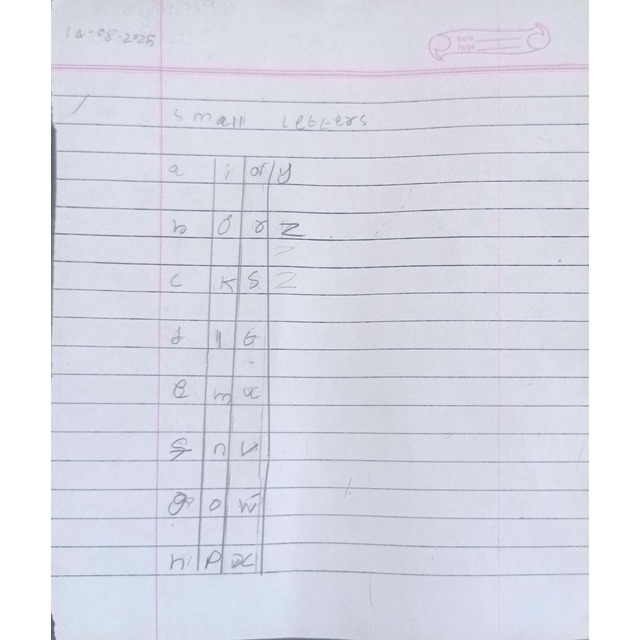 Date
Page
small letters
a i q y
b j r z
c k s z
d l t
e m u
f n v
g o w
h p x